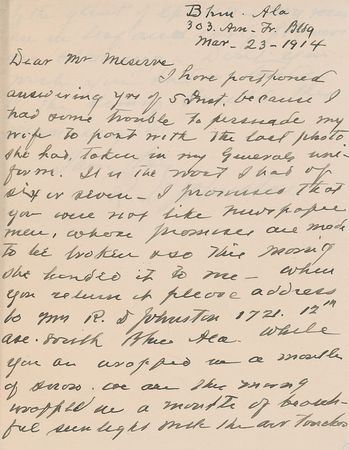 Bhm. Ala
303. Am. Tr. Bldg
Mar. 23-1914
Dear Mr Meserve
I have postponed
answering yrs of 5 Inst. because I
had some trouble to persuade my
wife to part with the last photo
she had, taken in my Generals uni-
form. It is the most I had of
six or seven - I promised that
you were not like newspaper
men, whose promises are made
to be broken & so this morng
she handed it to me - when
you return it please address
to Mrs R. D Johnston 1721. 12th
ave. South Bhm Ala. While
you are wrapped in a mantle
of snow. we are this morng
wrapped in a mantle of beauti-
ful sun light with the air touched